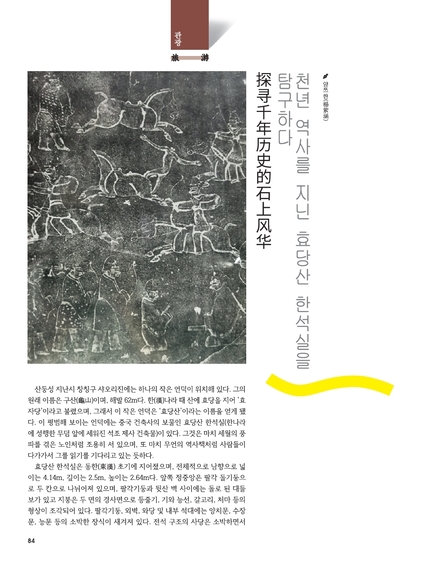 관광
旅 游
천년 역사를 지닌 효당산 한석실을
탐구하다
探寻千年历史的石上风华
산둥성 지난시 창칭구 샤오리진에는 하나의 작은 언덕이 위치해 있다. 그의
원래 이름은 구산(龜山)이며, 해발 62m다. 한(漢)나라 때 산에 효당을 지어 '효
자당'이라고 불렸으며, 그래서 이 작은 언덕은 '효당산'이라는 이름을 얻게 됐
다. 이 평범해 보이는 언덕에는 중국 건축사의 보물인 효당산 한석실(한나라
에 성행한 무덤 앞에 세워진 석조 제사 건축물)이 있다. 그것은 마치 세월의 풍
파를 겪은 노인처럼 조용히 서 있으며, 또 마치 무언의 역사책처럼 사람들이
다가가서 그를 읽기를 기다리고 있는 듯하다.
효당산 한석실은 동한(東漢) 초기에 지어졌으며, 전체적으로 남향으로 넓
이는 4.14m, 깊이는 2.5m, 높이는 2.64m다. 앞쪽 정중앙은 팔각 돌기둥으
로 두 칸으로 나뉘어져 있으며, 팔각기둥과 뒷산 벽 사이에는 돌로 된 대들
보가 있고 지붕은 두 면의 경사면으로 등줄기, 기와 능선, 갈고리, 처마 등의
형상이 조각되어 있다. 팔각기둥, 외벽, 와당 및 내부 석대에는 양치문, 수장
문, 능문 등의 소박한 장식이 새겨져 있다. 전석 구조의 사당은 소박하면서
84